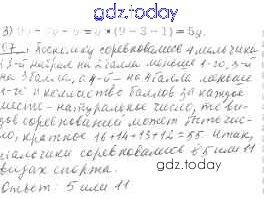 gdz.today
3) 9y - 3y - y = y × (9 - 3 - 1) = 5y.
Поскольку соревновались 4 мальчика
2-й набрал на 2 балла меньше 1-го, 3-й
на 3 балла, а 4-й - на 4 балла меньше
1-го и количество баллов за каждое
место - натуральное число, то ви-
дов соревнований может быть чис-
ло, кратное 16+14+13+12=55. Итак,
мальчики соревновались в 5 или 11
видах спорта.
gdz.today
Ответ: 5 или 11
gdz.today